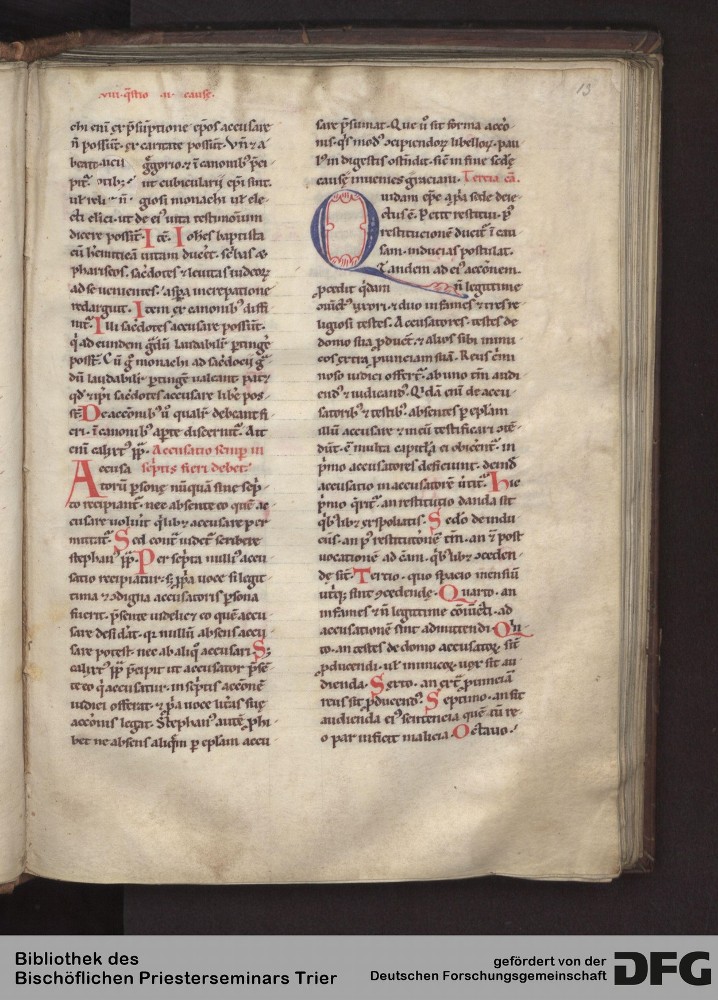 .viii. q̄stio .ii. causę.
13
chi eni᷒ ex p̄suptione ep̄os accusare
n̄ possūt. ex caritate possūt. Vn̄ & a
beato
ggorio. & ī canonib; p̄ci
pit᷒ ut cubicularij ep̄i sint.
giosi monachi ul̄ cle
ci elici. ut de ei᷒ uita testimoniūm
dicere possīt. Itē. Iohēs baptista
cū h̄emiticā uitam ducēt. scbas &
phariseos. sacdotes & leuitas iudeoꝝ
ad se uenientes. aspa increpatione
redarguit. Item ex canonib; diffi
nit᷒. Illi sacdotes accusare possūt.
q̄ ad eundem gdū laudabilit̄ ꝑtinge
possēt. Cū g̊ monachi ad sacdocij g̊
dū laudabilit̄ ꝑtingē ualeant. patet
qd̄ & ipi sacdotes accusare libe pos
sīt. De accōnib; ū qualit̄ debeant fi
eri. ī canonib; apte discernit᷒. Ait
eni᷒ calixt᷒ pp̄. Accusatio semp in
Accusa septis fieri debet.
toꝝ psonę nūquā sine sep̄
to recipiant᷒. nec absente eo quē ac
cusare uoluīt quib; accusare pmittat᷒. Sed cont᷒ uidet᷒ scribere
stephan᷒ pp̄. Per septa nulli᷒ accu
satio recipiatur. s; ppa uoce si legit
tima & ꝯdigna accusatoris psona
fuerit. p̄sente uidelic& eo quē accu
sare desidat. q; nullū absens accu
sare potest. nec ab aliq̊ accusari. S;
calixt᷒ pp̄ p̄cipit ut accusator p̄sē
te eo q̄ accusatur. in septis accōnē
iudici offerat. & ppa uoce litas suę
accōnis legat. Stephan᷒ autē phi
bet ne absens aliqm p eplam accu
sare p̄sumat. Que ū sit forma accō
nis. q̄s mod᷒ ꝯcipiendoꝝ libelloꝝ. pau
l᷒ in digestis ostūdit. sic̄ in fine sedę
causę inuenies gracianī. Tercia cā.
Quidam epc̄ a ppa sede deie
ctus ē. Petit restitui. p᷒
restitucionē ducit᷒ ī cau
sam. inducias postulat.
Tandem ad ei᷒ accōnem
pcedit q̄dam n̄ legitime
ꝯiūct᷒ uxori. & duo infames. & tres re
ligiosi testes. Accusatores. testes de
domo sua pducēt. & alios sibi inimi
cos extra puinciam suā. Reus cimi
noso iudici offert᷒. ab uno tm̄ audi
end᷒ & iudicand᷒. Qdā eni᷒ de accu
satorib; & testib; absentes p eplam
illū accusare & in eū testificari ꝯtē
dūt. & multa capitla ei obicēt᷒. in
p̄mo accusatores deficiunt. deind̄
accusatio in accusatorē ūtit᷒. Hic
p̄mo q̄rit᷒. an restitutio danda sit
q̄b;lib& exspoliatis. Sedo de indu
ciis. an p᷒ restitutionē tm̄. an & post
uocationē ad cām. q̄b;lib& ꝯceden
dę sīt. Tercio. quo spacio mensiū
utręq; sint ꝯcedendę. Quarto. an
infames & n̄ legittime ꝯiūcti. ad
accusationē sint admittendi. Qn̄
to. an testes de domo accusatoꝝ. sīt
pducendi. ul̄ inimicoꝝ uox sit au
dienda. Sexto. an ext̄ puinciā
reus sit pducend᷒. Septimo. an sit
audienda ei᷒ sentencia quē cū re
o par inficit malicia. Octauo.
Bibliothek des
Bischöflichen Priesterseminars Trier
gefördert von der
Deutschen Forschungsgemeinschaft
DFG